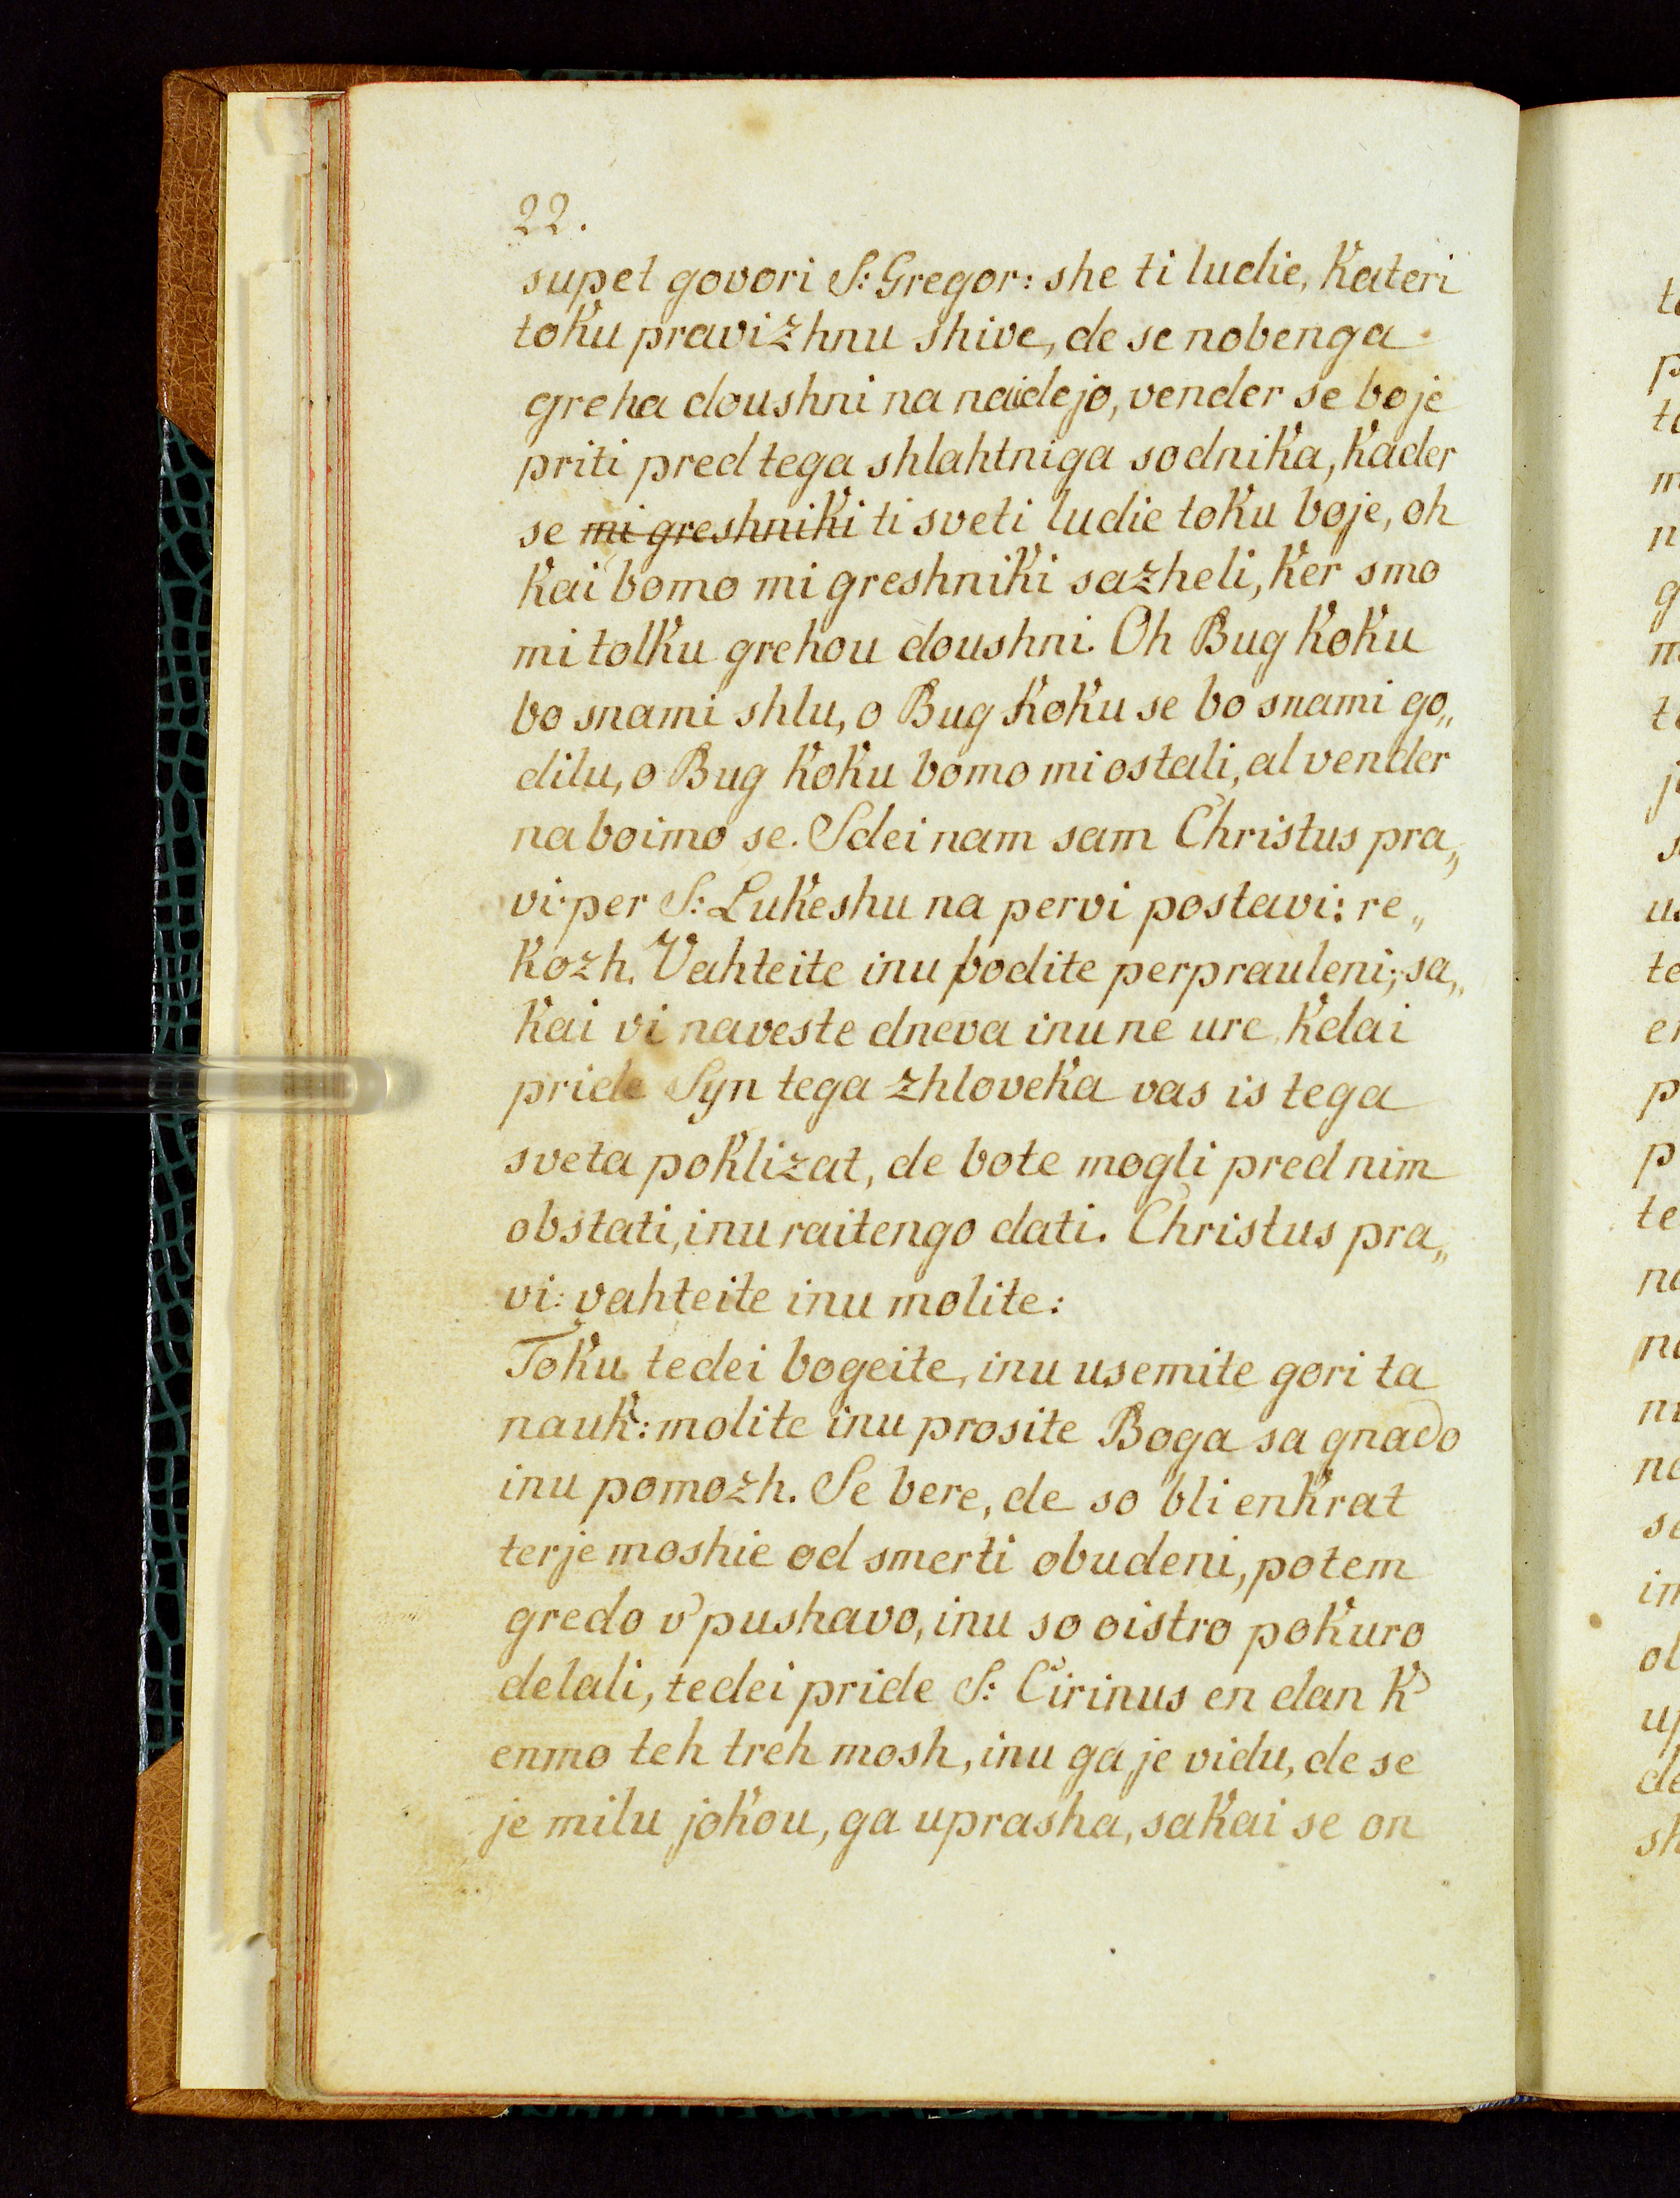 22.
supet govori S: Gregor: she ti ludie, kateri
toku pravizhnu shive, de se nobenga
greha doushni na naidejo, vender se boje
priti pred tega shlahtniga sodnika, kader
se mi greshniki ti sveti ludie toku boje, oh
kai bomo mi greshniki sazheli, ker smo
mi tolku grehou doushni. Oh Bug koku
bo snami shlu, o Bug koku se bo snami go„
dilu, o Bug koku bomo mi ostali, al vender
na boimo se. Sdei nam sam Christus pra„
vi per S: Lukeshu na pervi postavi: re„
kozh. Vahteite inu bodite perprauleni; sa„
kai vi naveste dneva inu ne ure, kdai
pride Syn tega zhloveka vas is tega
sveta poklizat, de bote mogli pred nim
obstati, inu raitengo dati. Christus pra„
vi: vahteite inu molite:
Toku tedei bogeite, inu usemite gori ta
nauk: molite inu prosite Boga sa gnado
inu pomozh. Se bere, de so bli enkrat
terje moshie od smerti obudeni, potem
gredo v' pushavo, inu so oistro pokuro
delali, tedei pride S: Cirinus en dan k'
enmo teh treh mosh, inu ga je vidu, de se
je milu jokou, ga uprasha, sakai se on